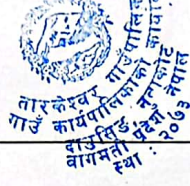 तारकेश्वर गाउँपालिका
गाउँ कार्यपालिकाको कार्या
दाङसिङ, नुवाकोट
बागमती प्रदेश, नेपाल
स्था : २०७३